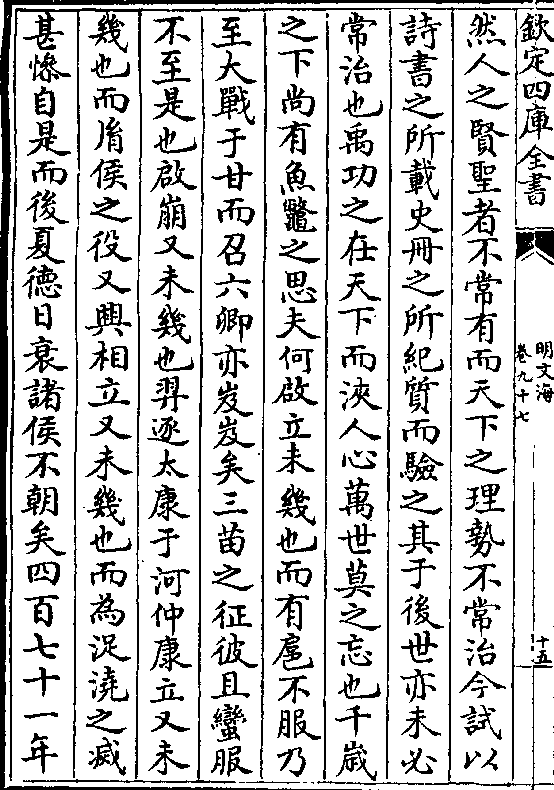 欽定四庫全書
明文海
卷九十七
十五
然人之賢聖者不常有而天下之理勢不常治今試以
詩書之所載史冊之所紀質而驗之其于後世亦未必
常治也禹功之在天下而浹人心萬世莫之忘也千嵗
之下尚有魚鼈之思夫何啟立未幾也而有扈不服乃
至大戰于甘而召六卿亦岌岌矣三苗之征彼且蠻服
不至是也啟崩又未幾也羿逐太康于河仲康立又未
幾也而胤侯之役又興相立又未幾也而為浞澆之滅
甚慘自是而後夏德日衰諸侯不朝矣四百七十一年